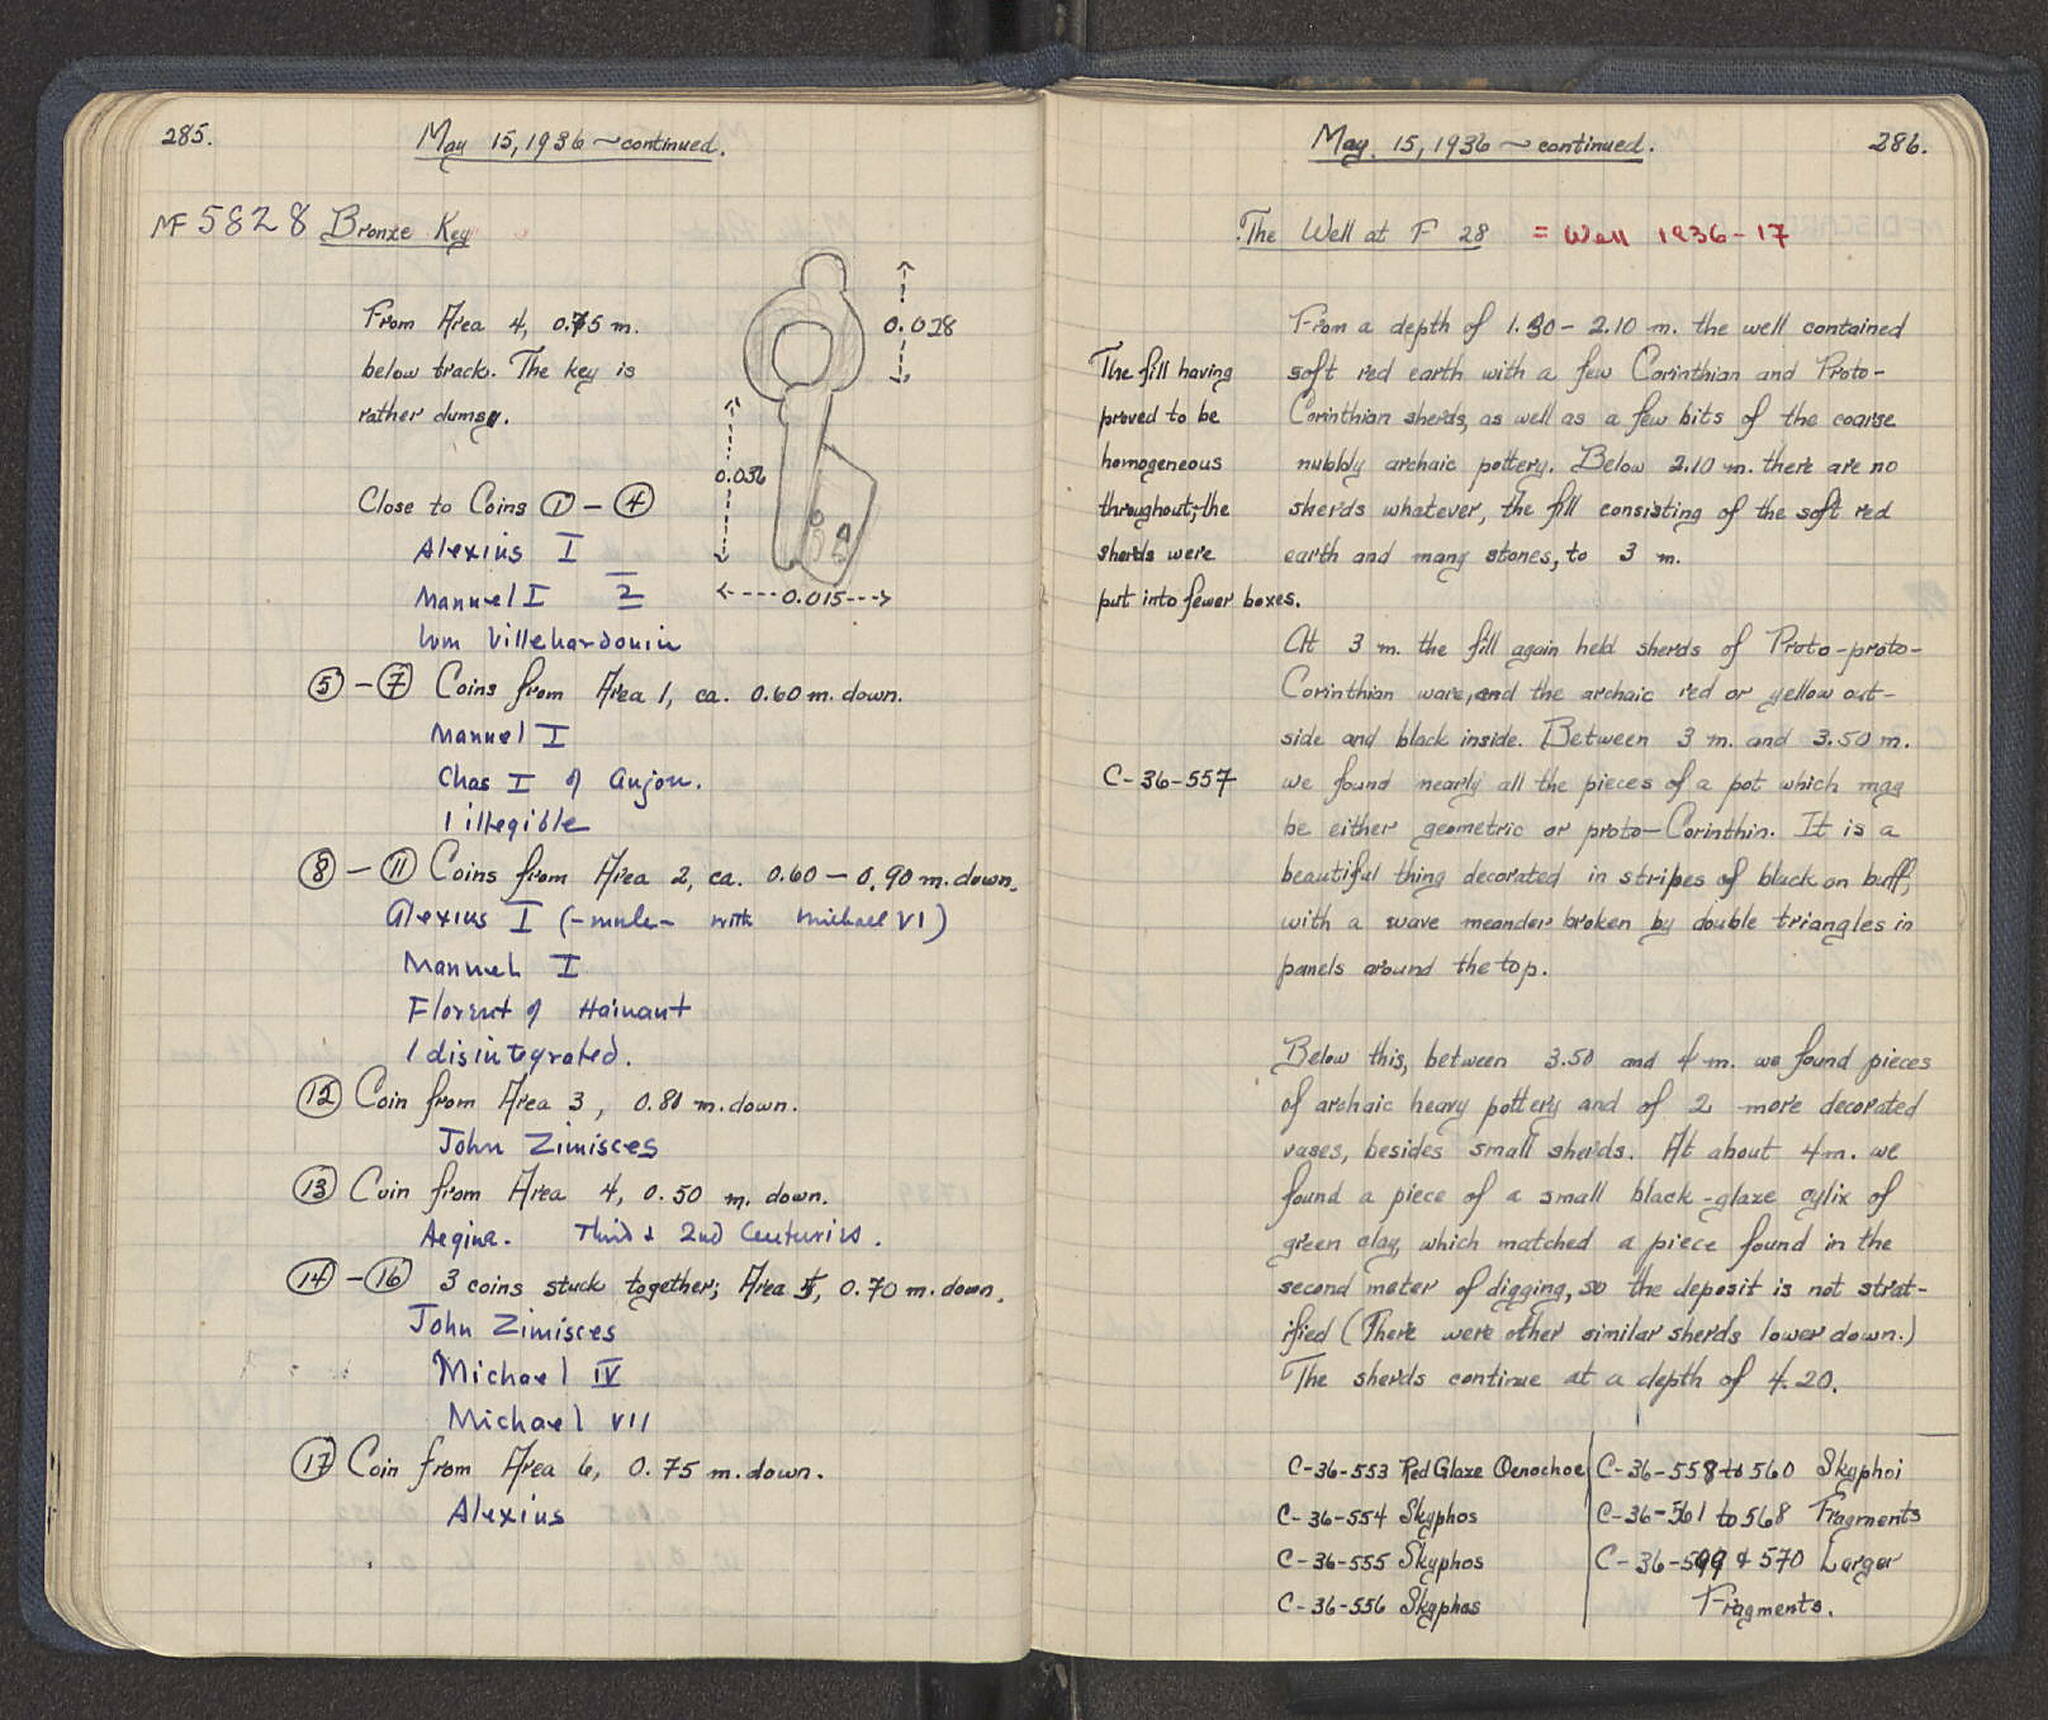 285.
May 15, 1936 ~ continued.
MF 5828 Bronze Key
0.028
From Area 4, 0.75 m.
below track. The key is
rather clumsy.
0.036
Close to Coins ① - ④
Alexius I
Manuel I 2
0.015
Wm Villehardouin
⑤ - ⑦ Coins from Area 1, ca. 0.60 m. down.
Manuel I
Chas I of Anjou.
1 illegible
⑧ - ⑪ Coins from Area 2, ca. 0.60 - 0.90 m. down.
Alexius I (-mule- with Michael VI)
Manuel I
Florent of Hainaut
1 disintegrated.
⑫ Coin from Area 3, 0.80 m. down.
John Zimisces
⑬ Coin from Area 4, 0.50 m. down.
Aegina. Third & 2nd Centuries.
⑭ - ⑯ 3 coins stuck together; Area 5, 0.70 m. down.
John Zimisces
Michael IV
Michael VII
⑰ Coin from Area 6, 0.75 m. down.
Alexius
May 15, 1936 ~ continued.
286.
The Well at F 28 = Well 1936-17
From a depth of 1.30 - 2.10 m. the well contained
soft red earth with a few Corinthian and Proto-
Corinthian sherds, as well as a few bits of the coarse
nubbly archaic pottery. Below 2.10 m. there are no
sherds whatever, the fill consisting of the soft red
earth and many stones, to 3 m.
The fill having
proved to be
homogeneous
throughout, the
sherds were
put into fewer boxes.
At 3 m. the fill again held sherds of Proto-proto-
Corinthian ware, and the archaic red or yellow out-
side and black inside. Between 3 m. and 3.50 m.
C-36-557
we found nearly all the pieces of a pot which may
be either geometric or proto-Corinthin. It is a
beautiful thing decorated in stripes of black on buff,
with a wave meander broken by double triangles in
panels around the top.
Below this, between 3.50 and 4 m. we found pieces
of archaic heavy pottery and of 2 more decorated
vases, besides small sherds. At about 4 m. we
found a piece of a small black-glaze cylix of
green clay, which matched a piece found in the
second meter of digging, so the deposit is not strat-
ified (There were other similar sherds lower down.)
The sherds continue at a depth of 4.20.
C-36-553 Red Glaze Oenochoe
C-36-554 Skyphos
C-36-555 Skyphos
C-36-556 Skyphos
C-36-558 to 560 Skyphoi
C-36-561 to 568 Fragments
C-36-599 & 570 Larger
Fragments.